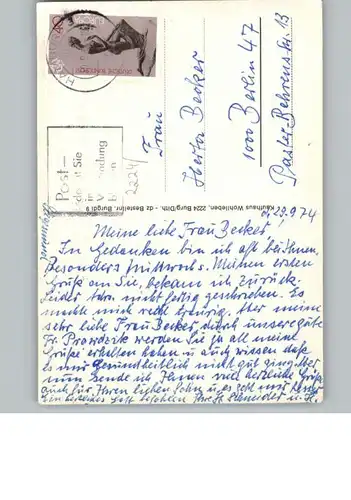 DEUTSCHE BUNDESPOST
EUROPA
40
Post-
Sie
in
V
b
2224
Frau
Herta Becker
1000 Berlin 47
Pastor-Behrens-Str. 13
Kaufhaus Wohlleben, 2224 Burg/Dith. - dz Bestellnr. Burgdi 9
d, 29.9.74
Meine liebe Frau Becker,
In Gedanken bin ich oft bei Ihnen,
besonders mittwochs. Meinen ersten
Gruß an Sie, bekam ich zurück.
Leider nicht fertig geschrieben. Es
machte mich recht traurig. Aber meine
sehr liebe Frau Becker, durch unsere gute
Fr. werden Sie ja all meine
Grüße erhalten haben u. auch wissen daß
es mir gesundheitlich nicht gut ging. Aber
nun sende ich Ihnen viel herzliche Grüße
auch für Ihren lieben Sohn u.
Gott befohlen Ihre